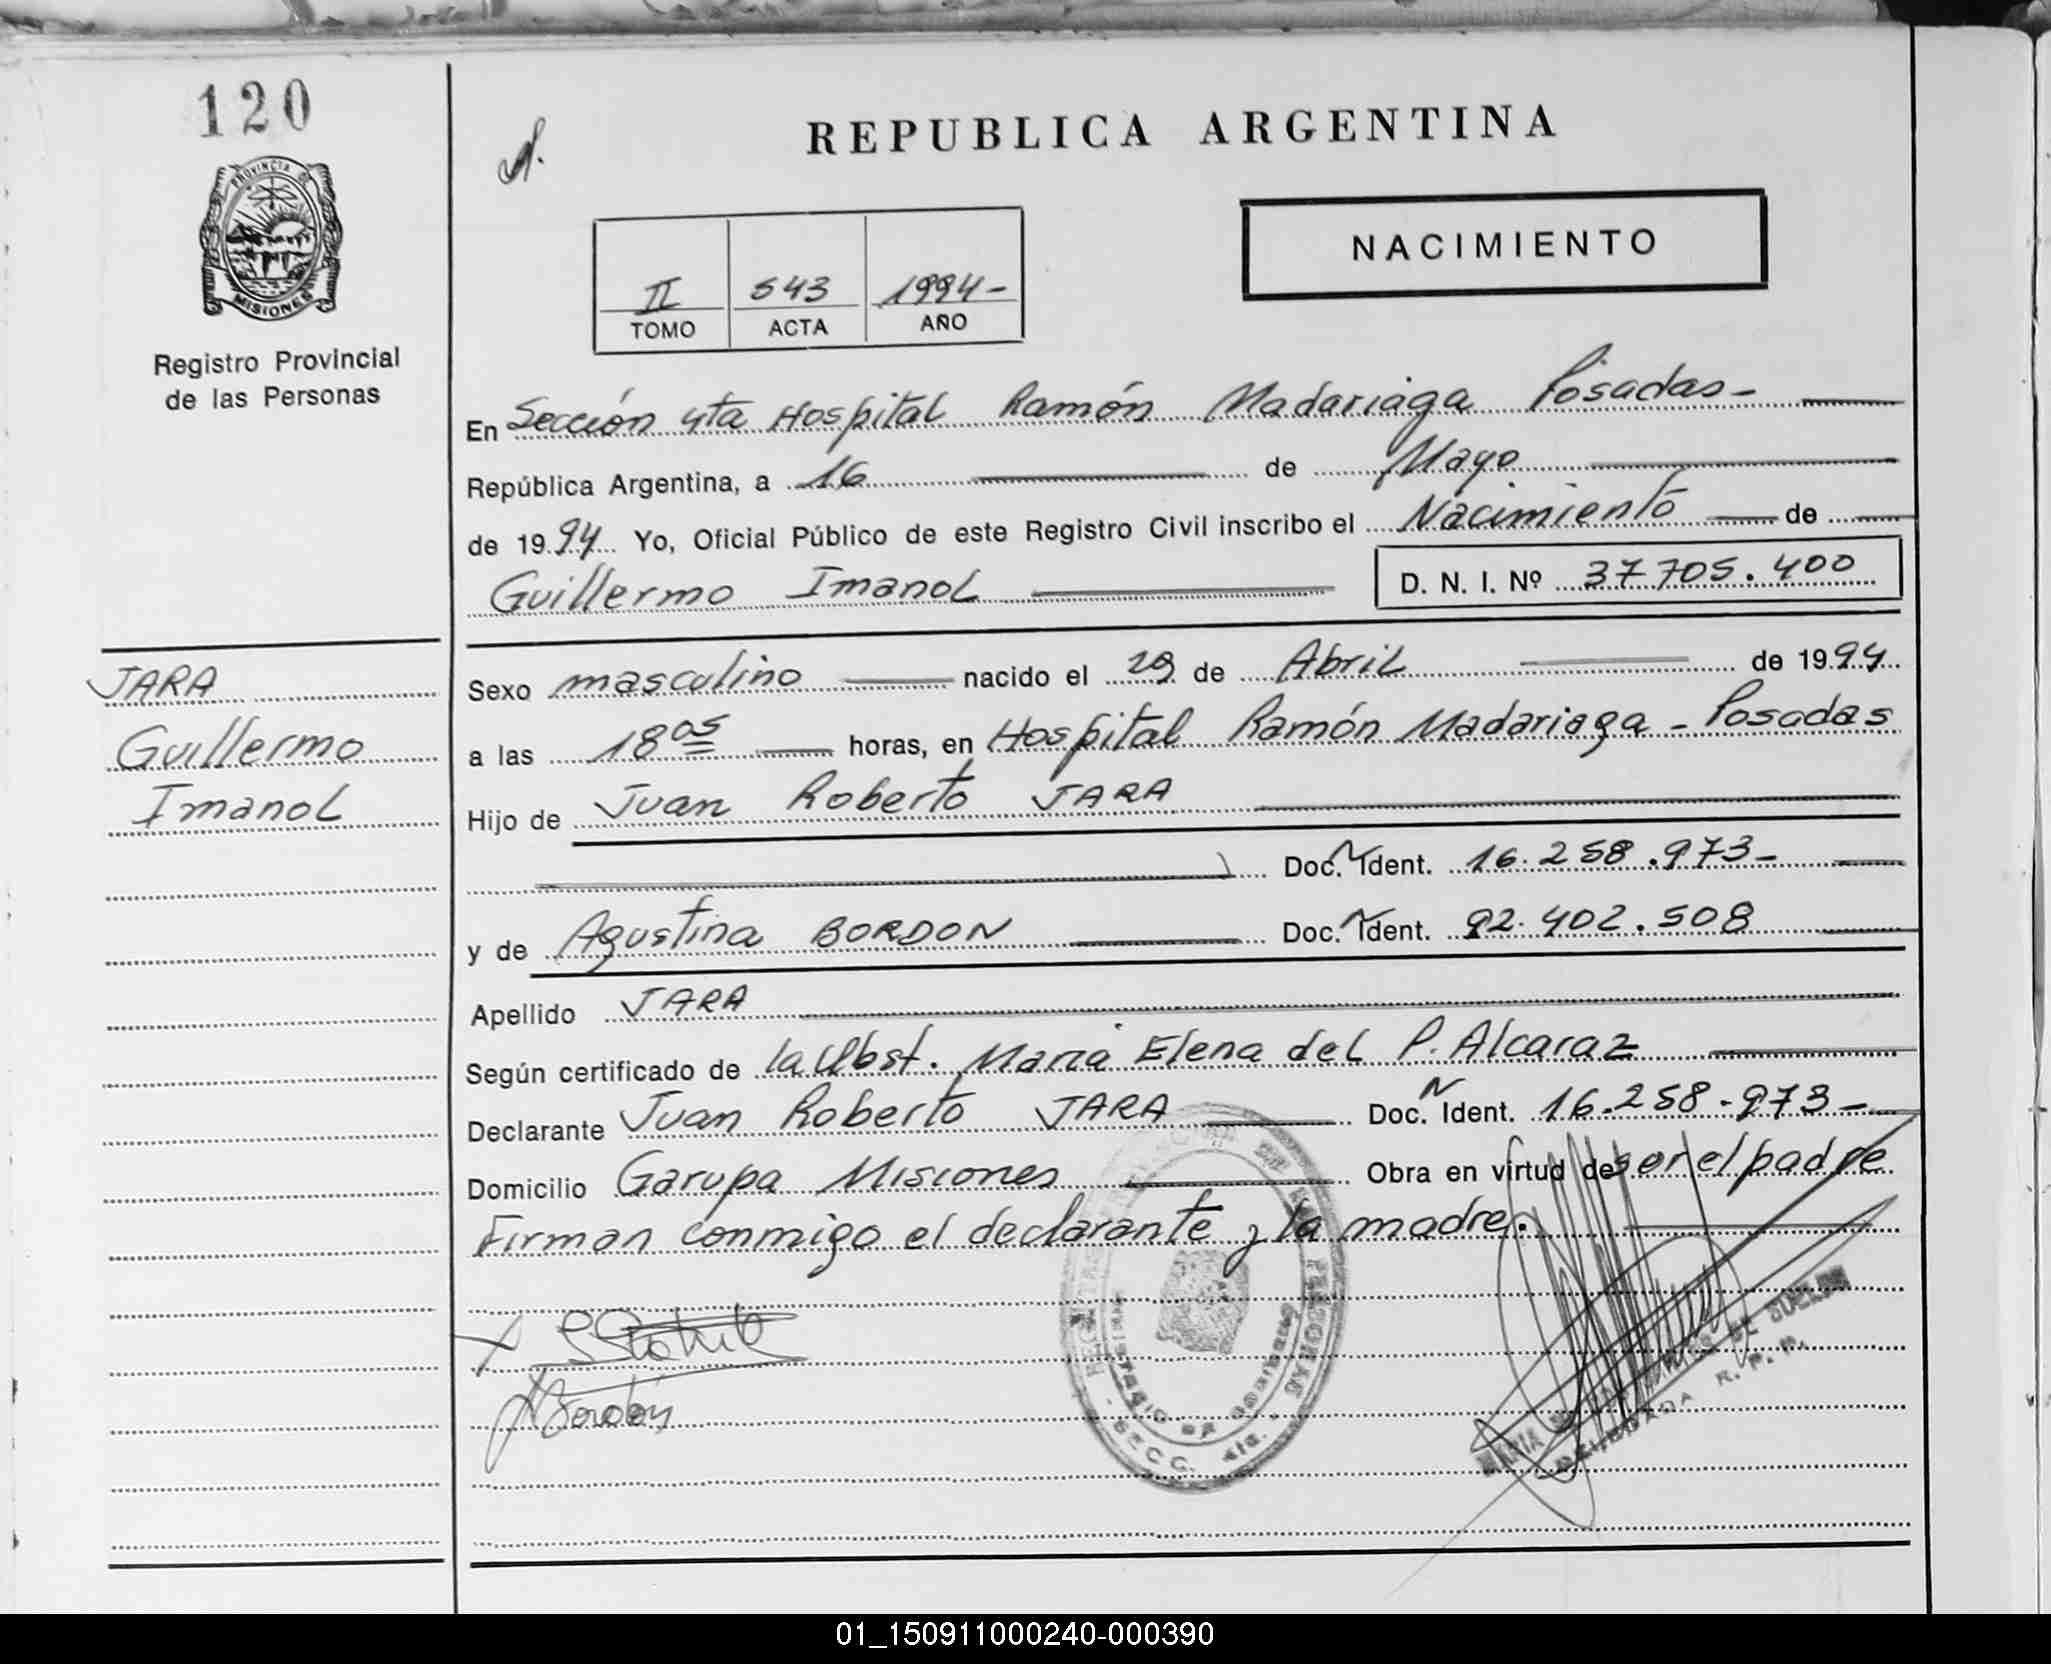 120
PROVINCIA DE
MISIONES
Registro Provincial
de las Personas
REPUBLICA ARGENTINA
NACIMIENTO
II 543 1994-
TOMO ACTA AÑO
En Sección 4ta Hospital Ramón Madariaga Posadas-
República Argentina, a 16 de Mayo
de 1994 Yo, Oficial Público de este Registro Civil inscribo el Nacimiento de
Guillermo Imanol D. N. I. Nº 37705.400
JARA
Guillermo
Imanol
Sexo masculino nacido el 29 de Abril de 1994
a las 18 05 horas, en Hospital Ramón Madariaga - Posadas
Hijo de Juan Roberto JARA
Doc. Ident. 16.258.973-
y de Agustina BORDON Doc. Ident. 92.402.508
Apellido JARA
Según certificado de la Obst. Maria Elena del P. Alcaraz
Declarante Juan Roberto JARA Doc. Ident. 16.258.973-
Domicilio Garupa Misiones Obra en virtud de ser el padre
Firman conmigo el declarante y la madre.
Bordón
REGISTRO DE LAS PERSONAS
MINISTERIO DE GOBIERNO
- SECC. 4ta. -
MARIA DE
DELEGADA R. P. P.
01_150911000240-000390